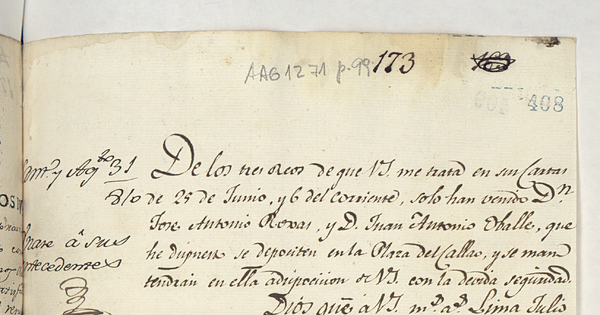 AAG1271 p. 99 173
408
De los tres reos de que VS. me trata en sus Cartas
de 25 de Junio, y 6 del corriente, solo han venido Dn
Jose Antonio Roxas, y D. Juan Antonio Ovalle, que
he dispuesto se depositen en la Plaza del Callao, y se man
tendran en ella a disposicion de VS. con la devida seguridad.
Dios gue. a VS. ms. as. Lima Julio
y Agto 31
810
a sus
antecedentes